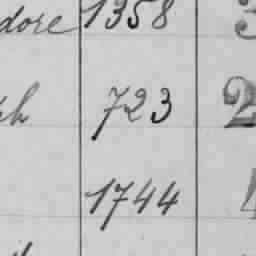 dore 1358 3
ph 723 2
1744 4